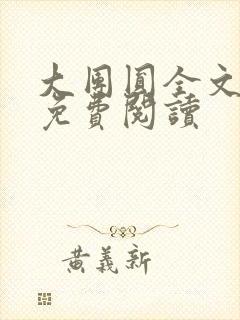 大團圓全文
免費閱讀
黃義新